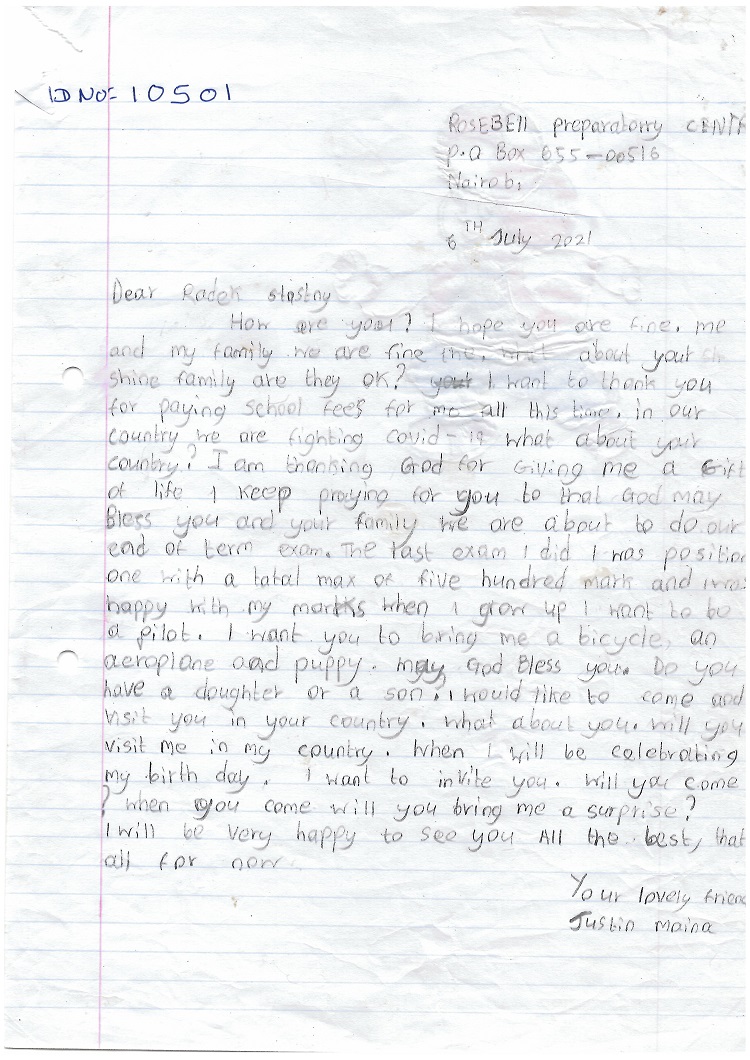 ID NO:- 10501
ROSEBEll preparatorry CENTR
P.O Box 655-00516
Nairobi
6TH July 2021
Dear Radek stastny
How are you? I hope you are fine. me
and my family we are fine about your
shine family are they OK? I want to thank you
for paying school fees for me all this time. in our
country we are fighting covid-19 what about your
country? I am thanking God for Giving me a Gift
of life I keep praying for you to that God may
Bless you and your family we are about to do our
end of term exam. The last exam I did I was position
one with a total max of five hundred mark and I was
happy with my marks when I grow up I want to be
a pilot. I want you to bring me a bicycle, an
aeroplane and puppy. may God Bless you. Do you
have a daughter or a son. I would like to come and
visit you in your country. what about you. will you
visit me in my country. when I will be celebrating
my birth day. I want to invite you. will you come
? when you come will you bring me a surprise?
I will be very happy to see you All the best, that
all for now
Your lovely friend
Justin maina